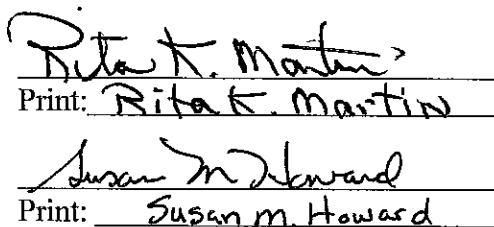 Rita K. Martin
Print: Rita K. Martin
Susan M Howard
Print: Susan M. Howard